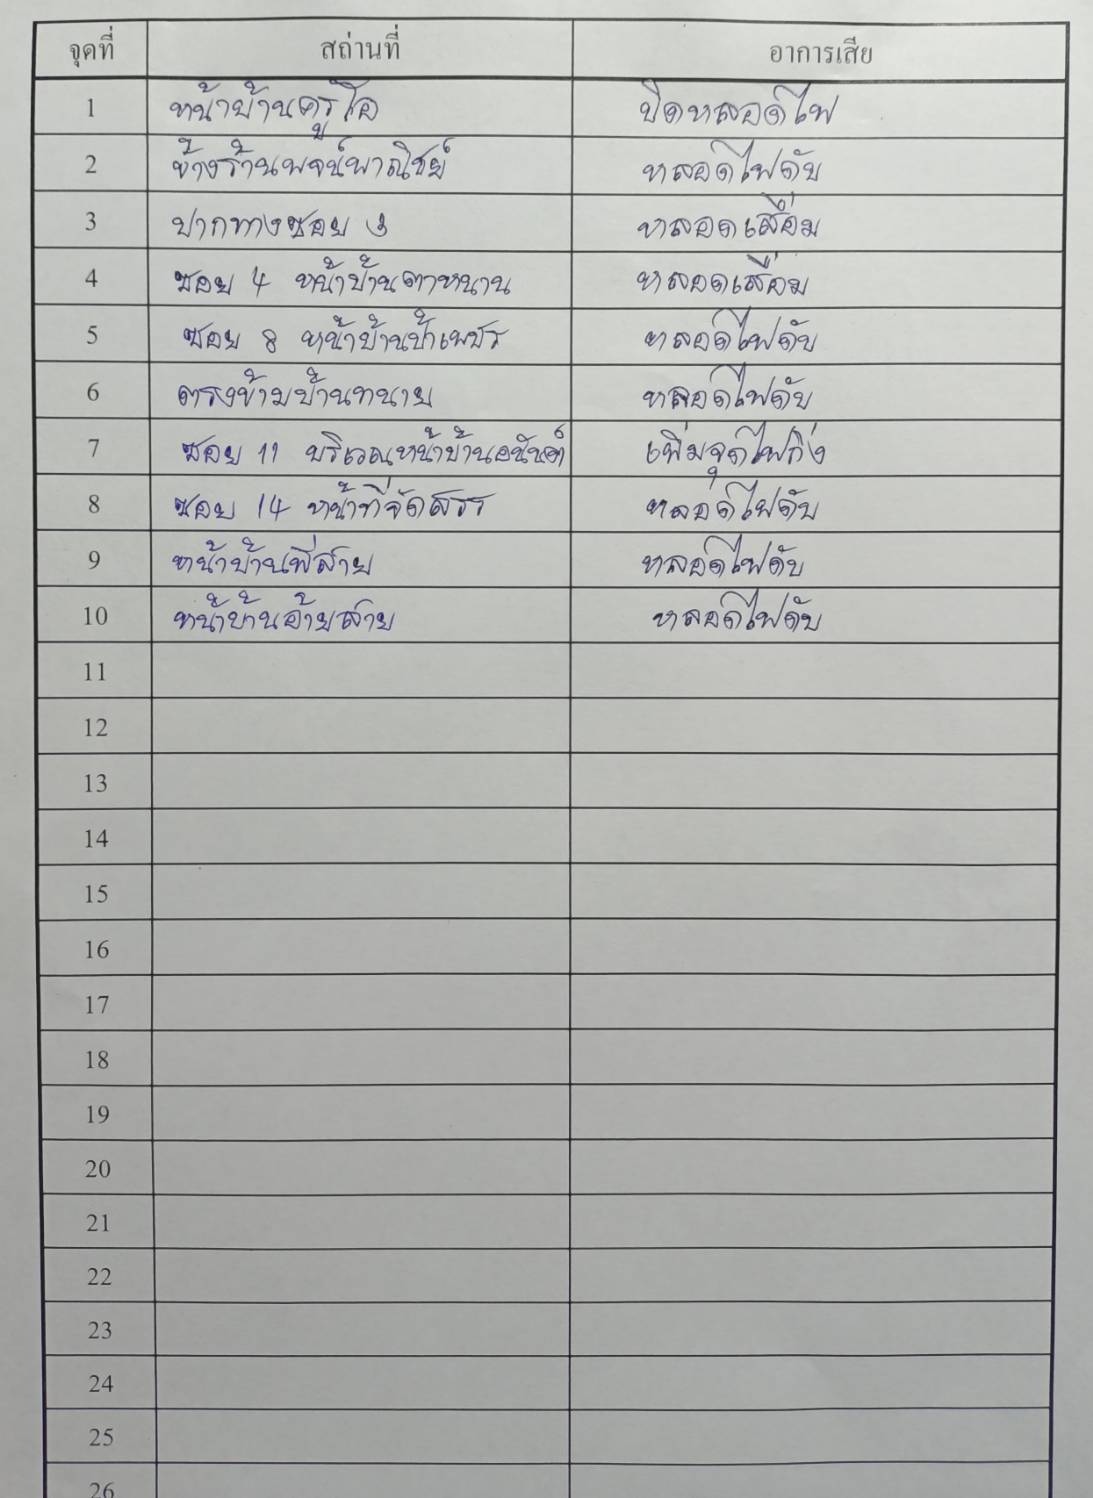 จุดที่ สถานที่ อาการเสีย
1 หน้าบ้านครูโอ ปิดหลอดไฟ
2 ข้างร้านพจน์พาณิชย์ หลอดไฟดับ
3 ปากทางซอย 3 หลอดเสื่อม
4 ซอย 4 หน้าบ้านตาหนาน หลอดเสื่อม
5 ซอย 8 หน้าบ้านป้าเพชร หลอดไฟดับ
6 ตรงข้ามบ้านทนาย หลอดไฟดับ
7 ซอย 11 บริเวณหน้าบ้านอนันต์ เพิ่มจุดไฟกิ่ง
8 ซอย 14 หน้าที่จัดสรร หลอดไฟดับ
9 หน้าบ้านพี่สาย หลอดไฟดับ
10 หน้าบ้านอ้ายสาย หลอดไฟดับ
11
12
13
14
15
16
17
18
19
20
21
22
23
24
25
26